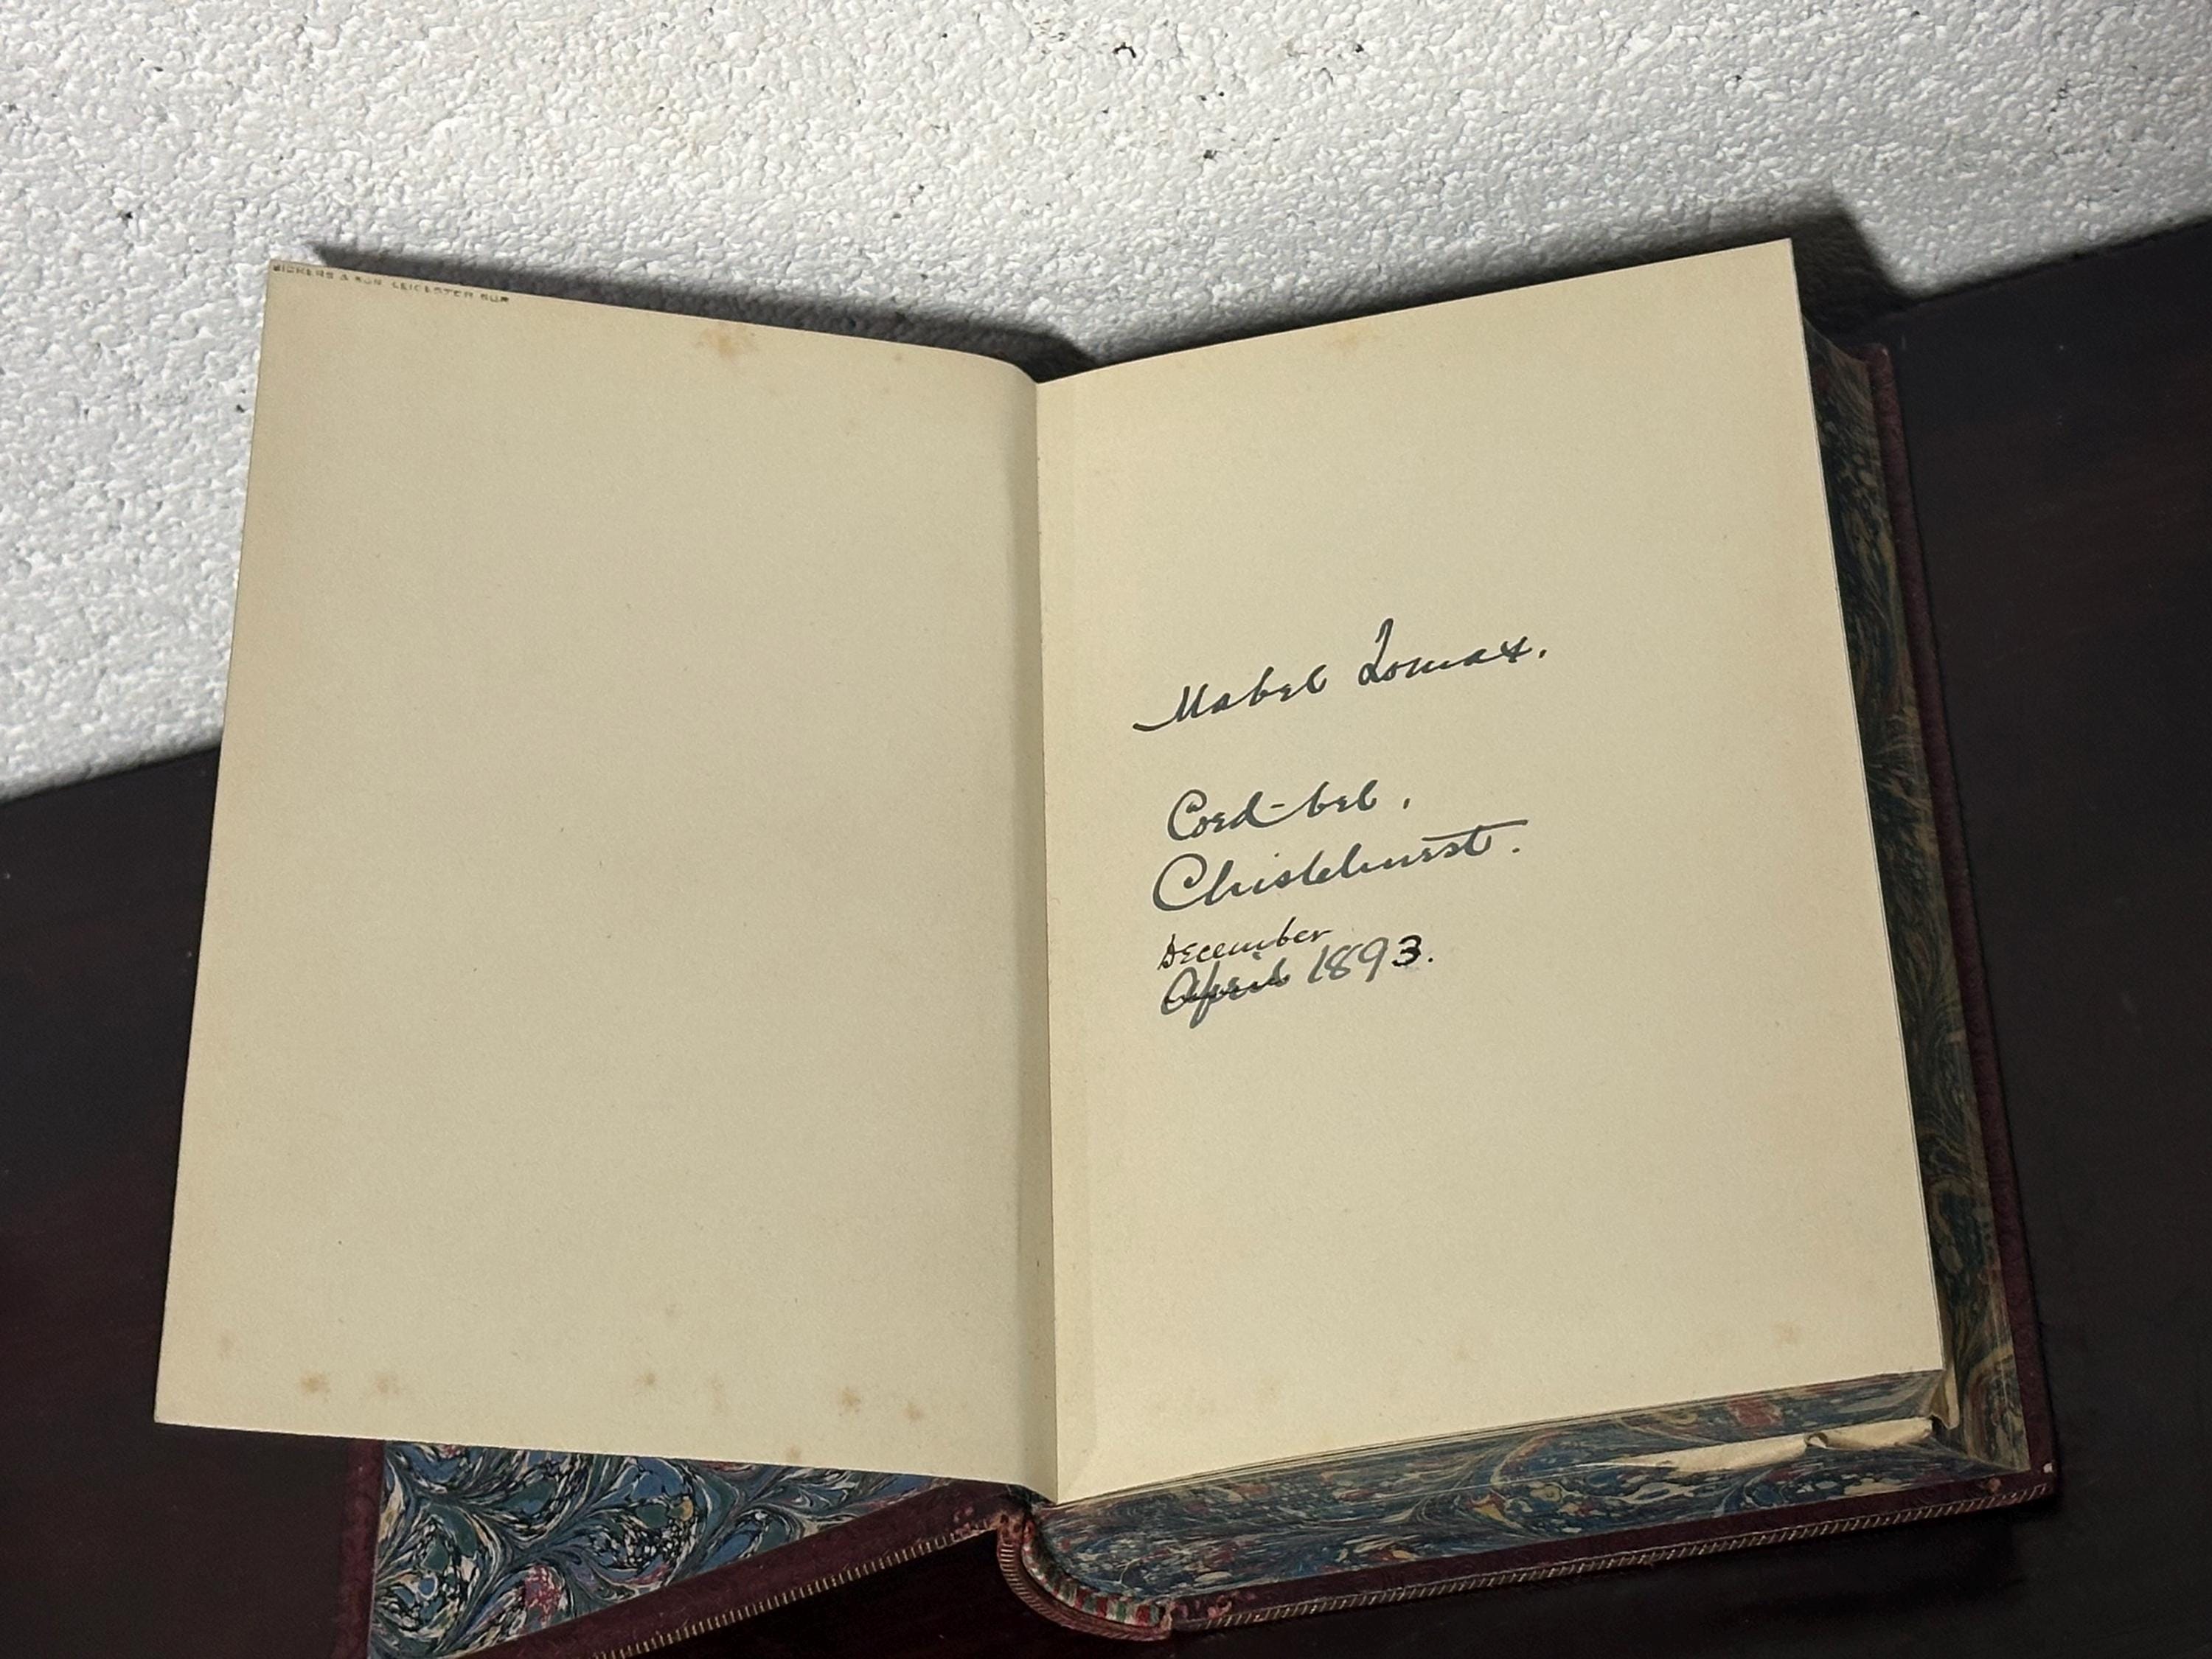 BICKERS & SON LEICESTER SQR
Mabel Lomax.
Coed-bel,
Chislehurst.
December
April 1893.